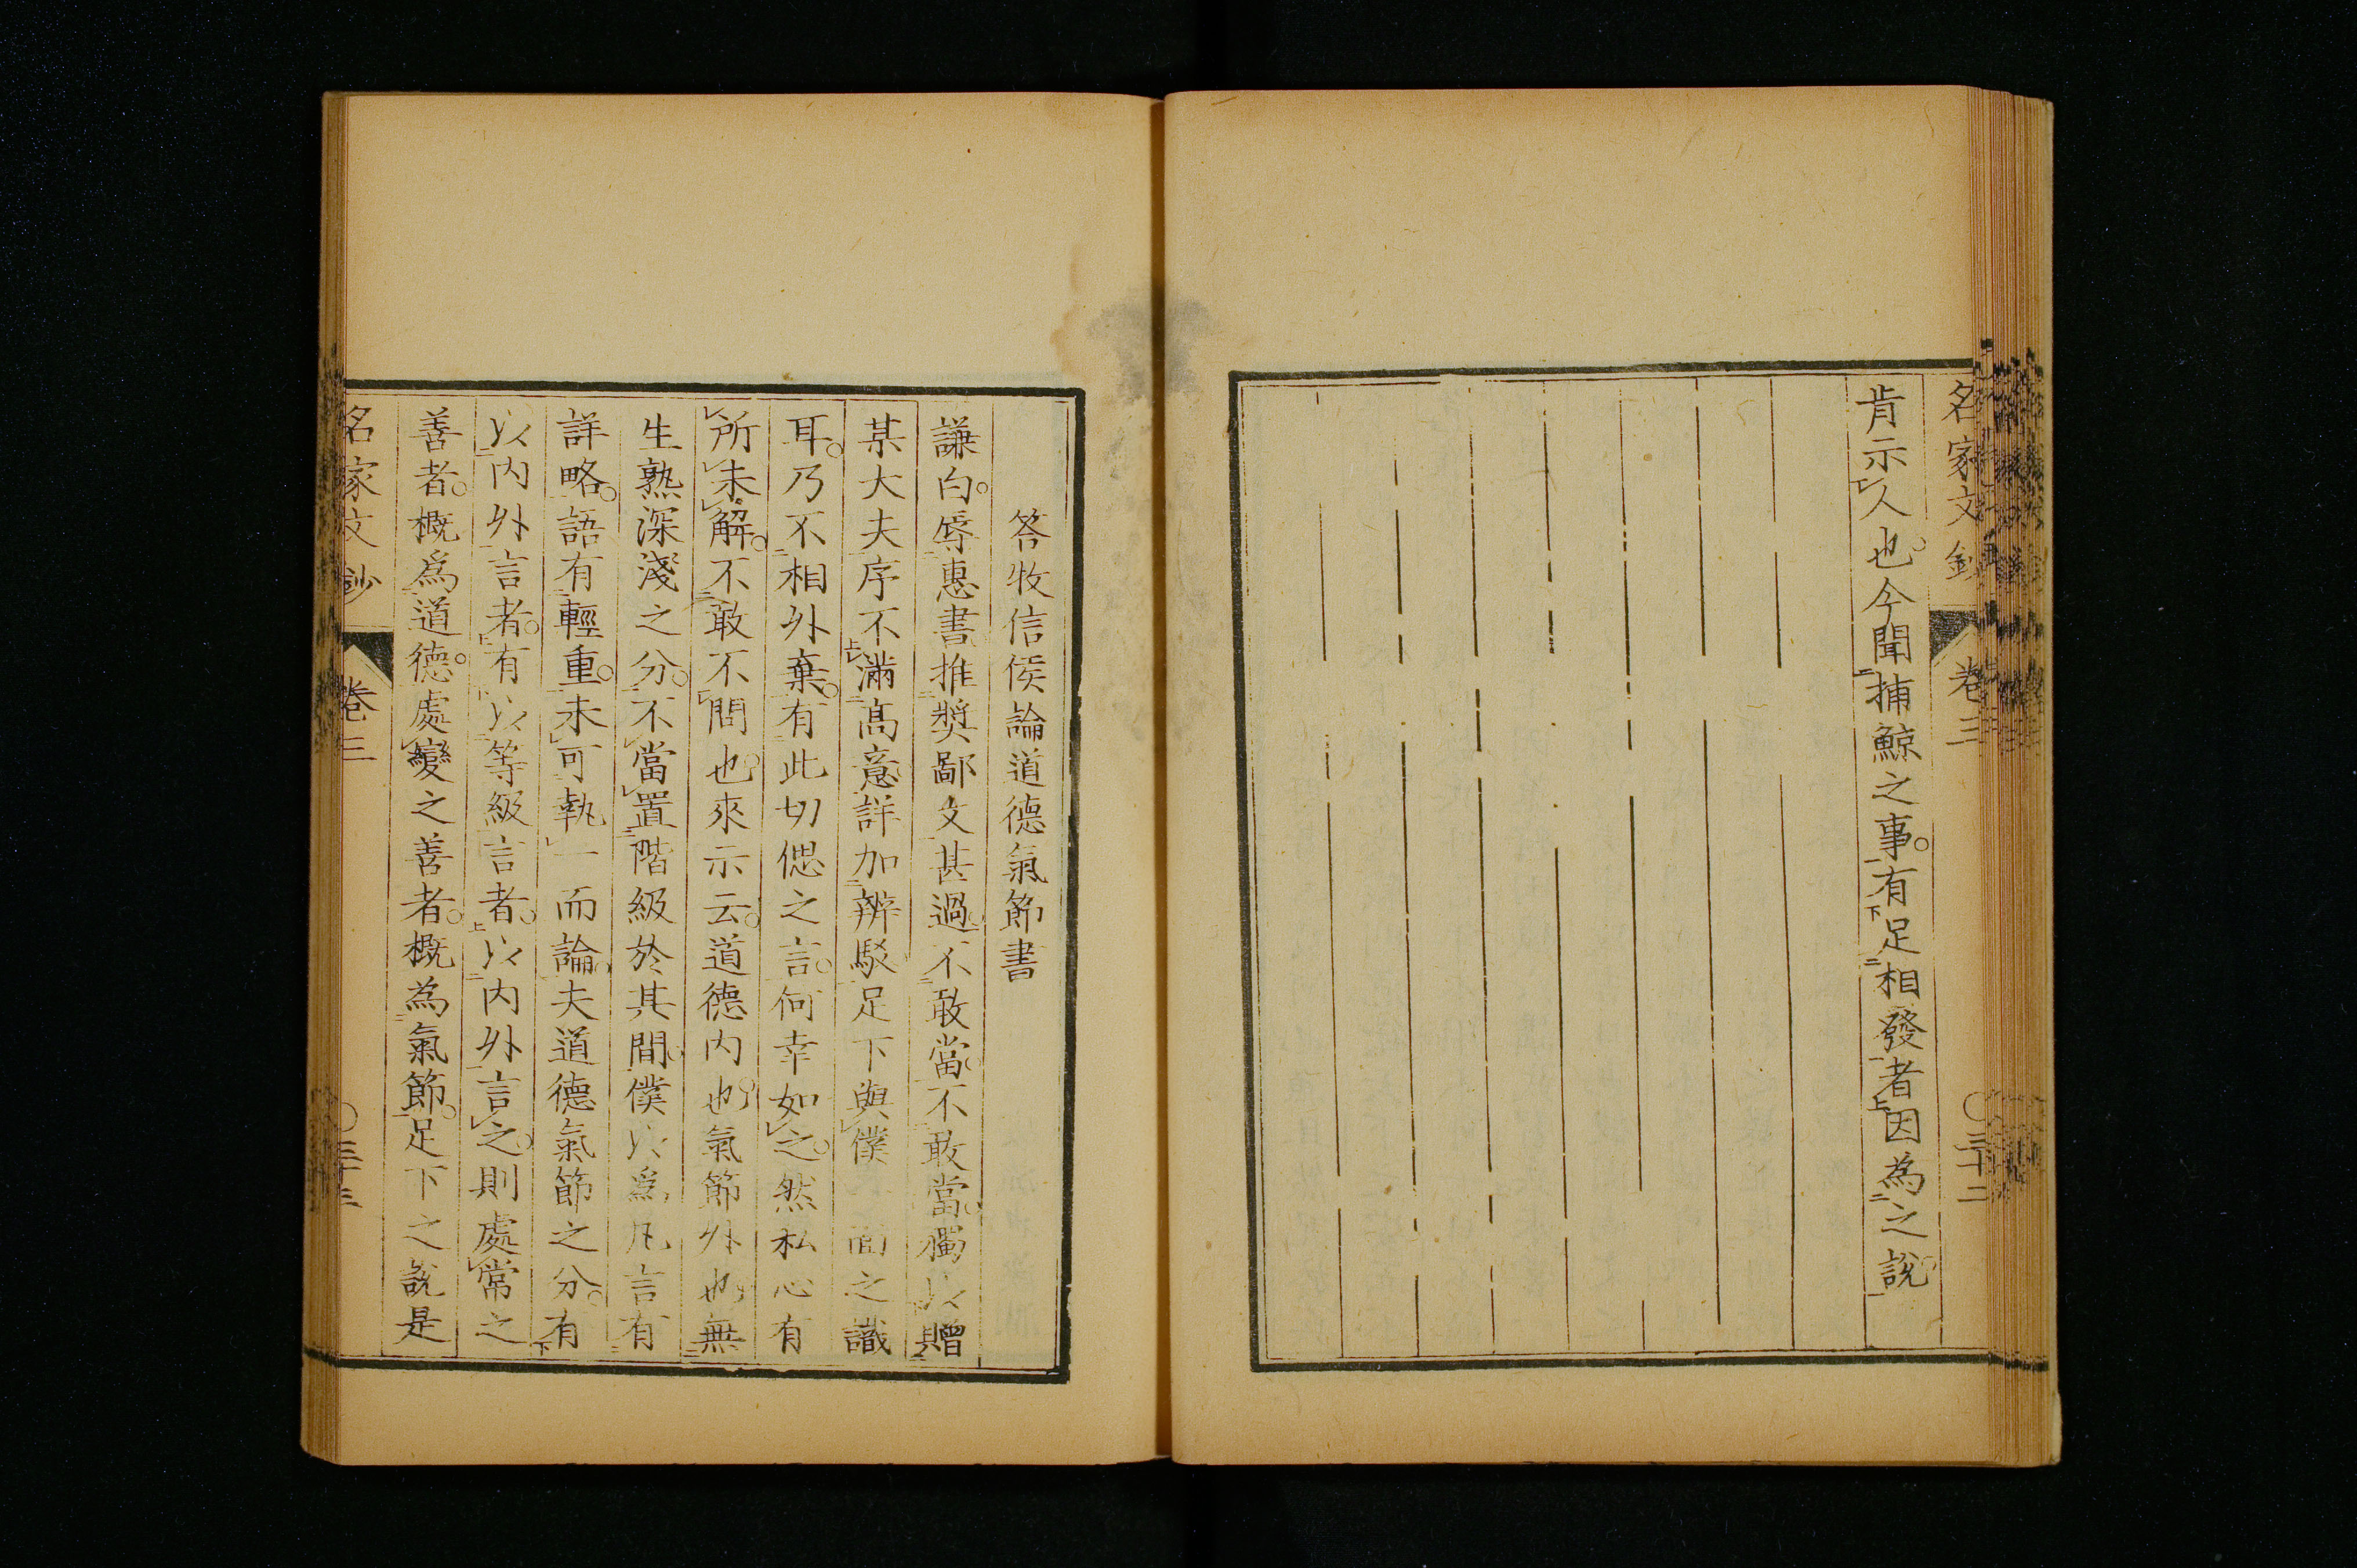 名家文鈔 卷三 〇三十二
肯示人也今聞捕鯨之事。有足相發者因為之說
答牧信侯論道德氣節書
謙白。辱惠書推奬鄙文甚過。不敢當。不敢當。獨以贈
某大夫序不滿高意詳加辨駁足下與僕面之識
耳。乃不相外棄。有此切偲之言。何幸如之。然私心有
所未解。不敢不問也。來示云。道德內也。氣節外也。無
生熟深淺之分。不當置階級於其間。僕以爲凡言有
詳略。語有輕重。未可執一而論。夫道德氣節之分。有
以內外言者。有以等級言者。以內外言之。則處常之
善者。概爲道德。處變之善者。概為氣節。足下之說是
名家文鈔 卷三 〇三十三